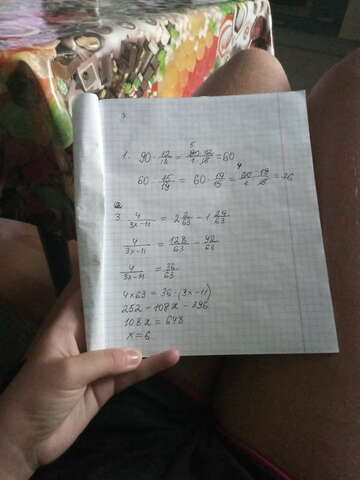 1. 90 · 12/18 = 90·12/1·18 = 60
60 · 15/19 = 60 · 19/15 = 60·19/1·15 = 76
3. 4/3x-11 = 2 2/63 - 1 29/63
4/3x-11 = 128/63 - 92/63
4/3x-11 = 36/63
4×63 = 36·(3x-11)
252 = 108x - 396
108x = 648
x = 6